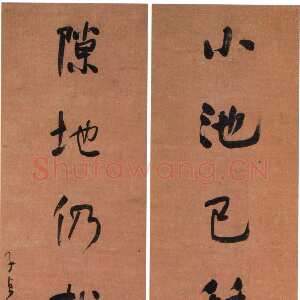 小池已
隙地仍
子貞
Shufawang.CN